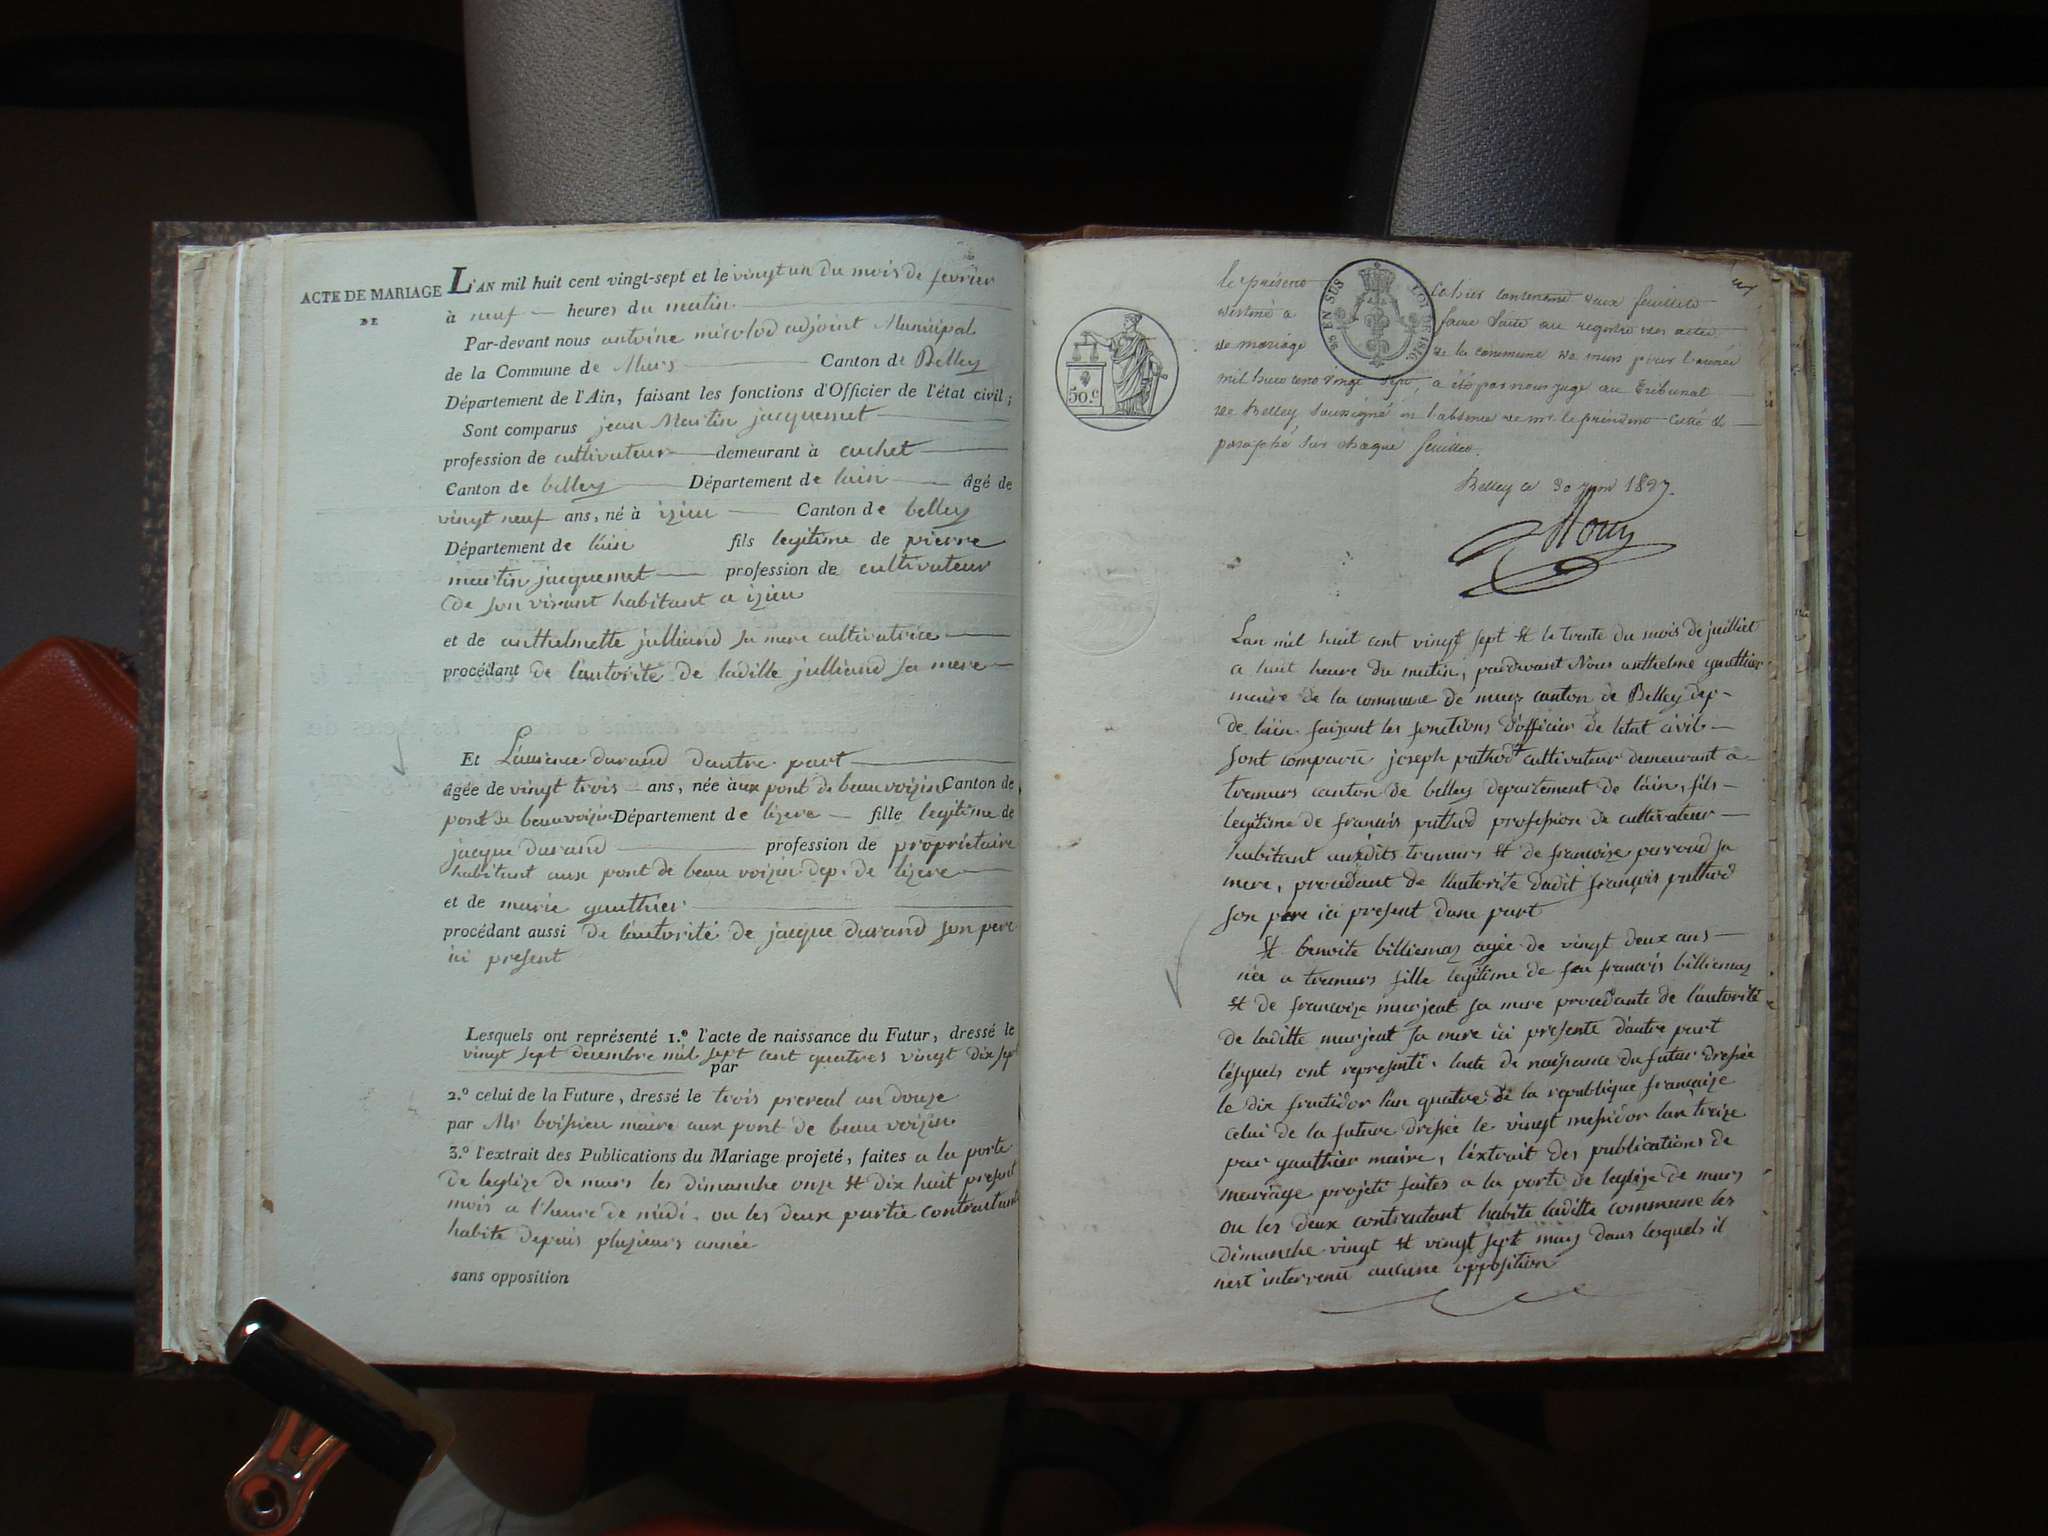 ACTE DE MARIAGE
DE
L'AN mil huit cent vingt-sept et le vingt un du mois de fevrier
à neuf heures du matin
Par-devant nous antoine micolod adjoint Municipal
de la Commune de Murs Canton de Belley
Département de l'Ain, faisant les fonctions d'Officier de l'état civil;
Sont comparus jean Martin jacquemet
profession de cultivateur demeurant à cuchet
Canton de belley Département de lain âgé de
vingt neuf ans, né à izieu Canton de belley
Département de lain fils legitime de pierre
martin jacquemet profession de cultivateur
de son vivant habitant a izieu
et de anthelmette julliand sa mere cultivatrice
procédant de lautorité de laditte julliand sa mere
Et Laurence durand dautre part
âgée de vingt trois ans, née aux pont de beauvoizin Canton de
pont de beauvoizin Département de lizere fille legitime de
jacque durand profession de propriétaire
habitant aux pont de beau voizin dep. de lizere
et de marie gauthier
procédant aussi de lautorité de jacque durand son pere
ici present
Lesquels ont représenté 1.º l'acte de naissance du Futur, dressé le
vingt sept decembre mil sept cent quatres vingt dix sept
par
2.º celui de la Future, dressé le trois prereal an douze
par Mr boissieu maire aux pont de beau voizin
3.º l'extrait des Publications du Mariage projeté, faites a la porte
de leglize de murs les dimanche onze et dix huit present
mois a l'heure de midi. ou les deux partie contractant
habite depuis plusieurs année
sans opposition
50.c
EN SUS
LOI DE 1816
le présent cahier contenant deux feuillets
destiné a faire suite au registre des actes
de mariage de la commune de murs pour l'année
mil huit cent vingt sept, a été par nous juge au Tribunal
de Belley soussigné en l'absence de mr. le président cotté et
paraphé sur chaque feuillet.
Belley le 30 1827.
Lan mil huit cent vingt sept et le trente du mois de juillet
a huit heure du matin, pardevant Nous anthelme gauthier
maire de la commune de murs canton de Belley dep-
de lain faizant les fonctions d'officier de letat civil
sont comparu joseph puthod cultivateur demeurant a
tremurs canton de belley departement de lain, fils
legitime de francois puthod profession de cultivateur
habitant auxdits tremurs et de francoise perroud sa
mere, procedant de lautorité dudit françois puthod
son pere ici present dune part
et benoite billiemaz agée de vingt deux ans
née a tremurs fille legitime de feu francois billiemaz
et de francoize murjeat sa mere procedante de lautorité
de laditte murjeat sa mere ici presente d'autre part
lésquels ont representé lacte de naissance du futur dressée
le dix fructidor lan quatre de la republique francaize
celui de la future dressée le vingt messidor lan treize
par gauthier maire, léxtrait des publications de
mariage projeté faites a la porte de leglize de murs
ou les deux contractant habite laditte commune les
dimanche vingt et vingt sept mais dans lesquels il
nest intervenu aucune opposition